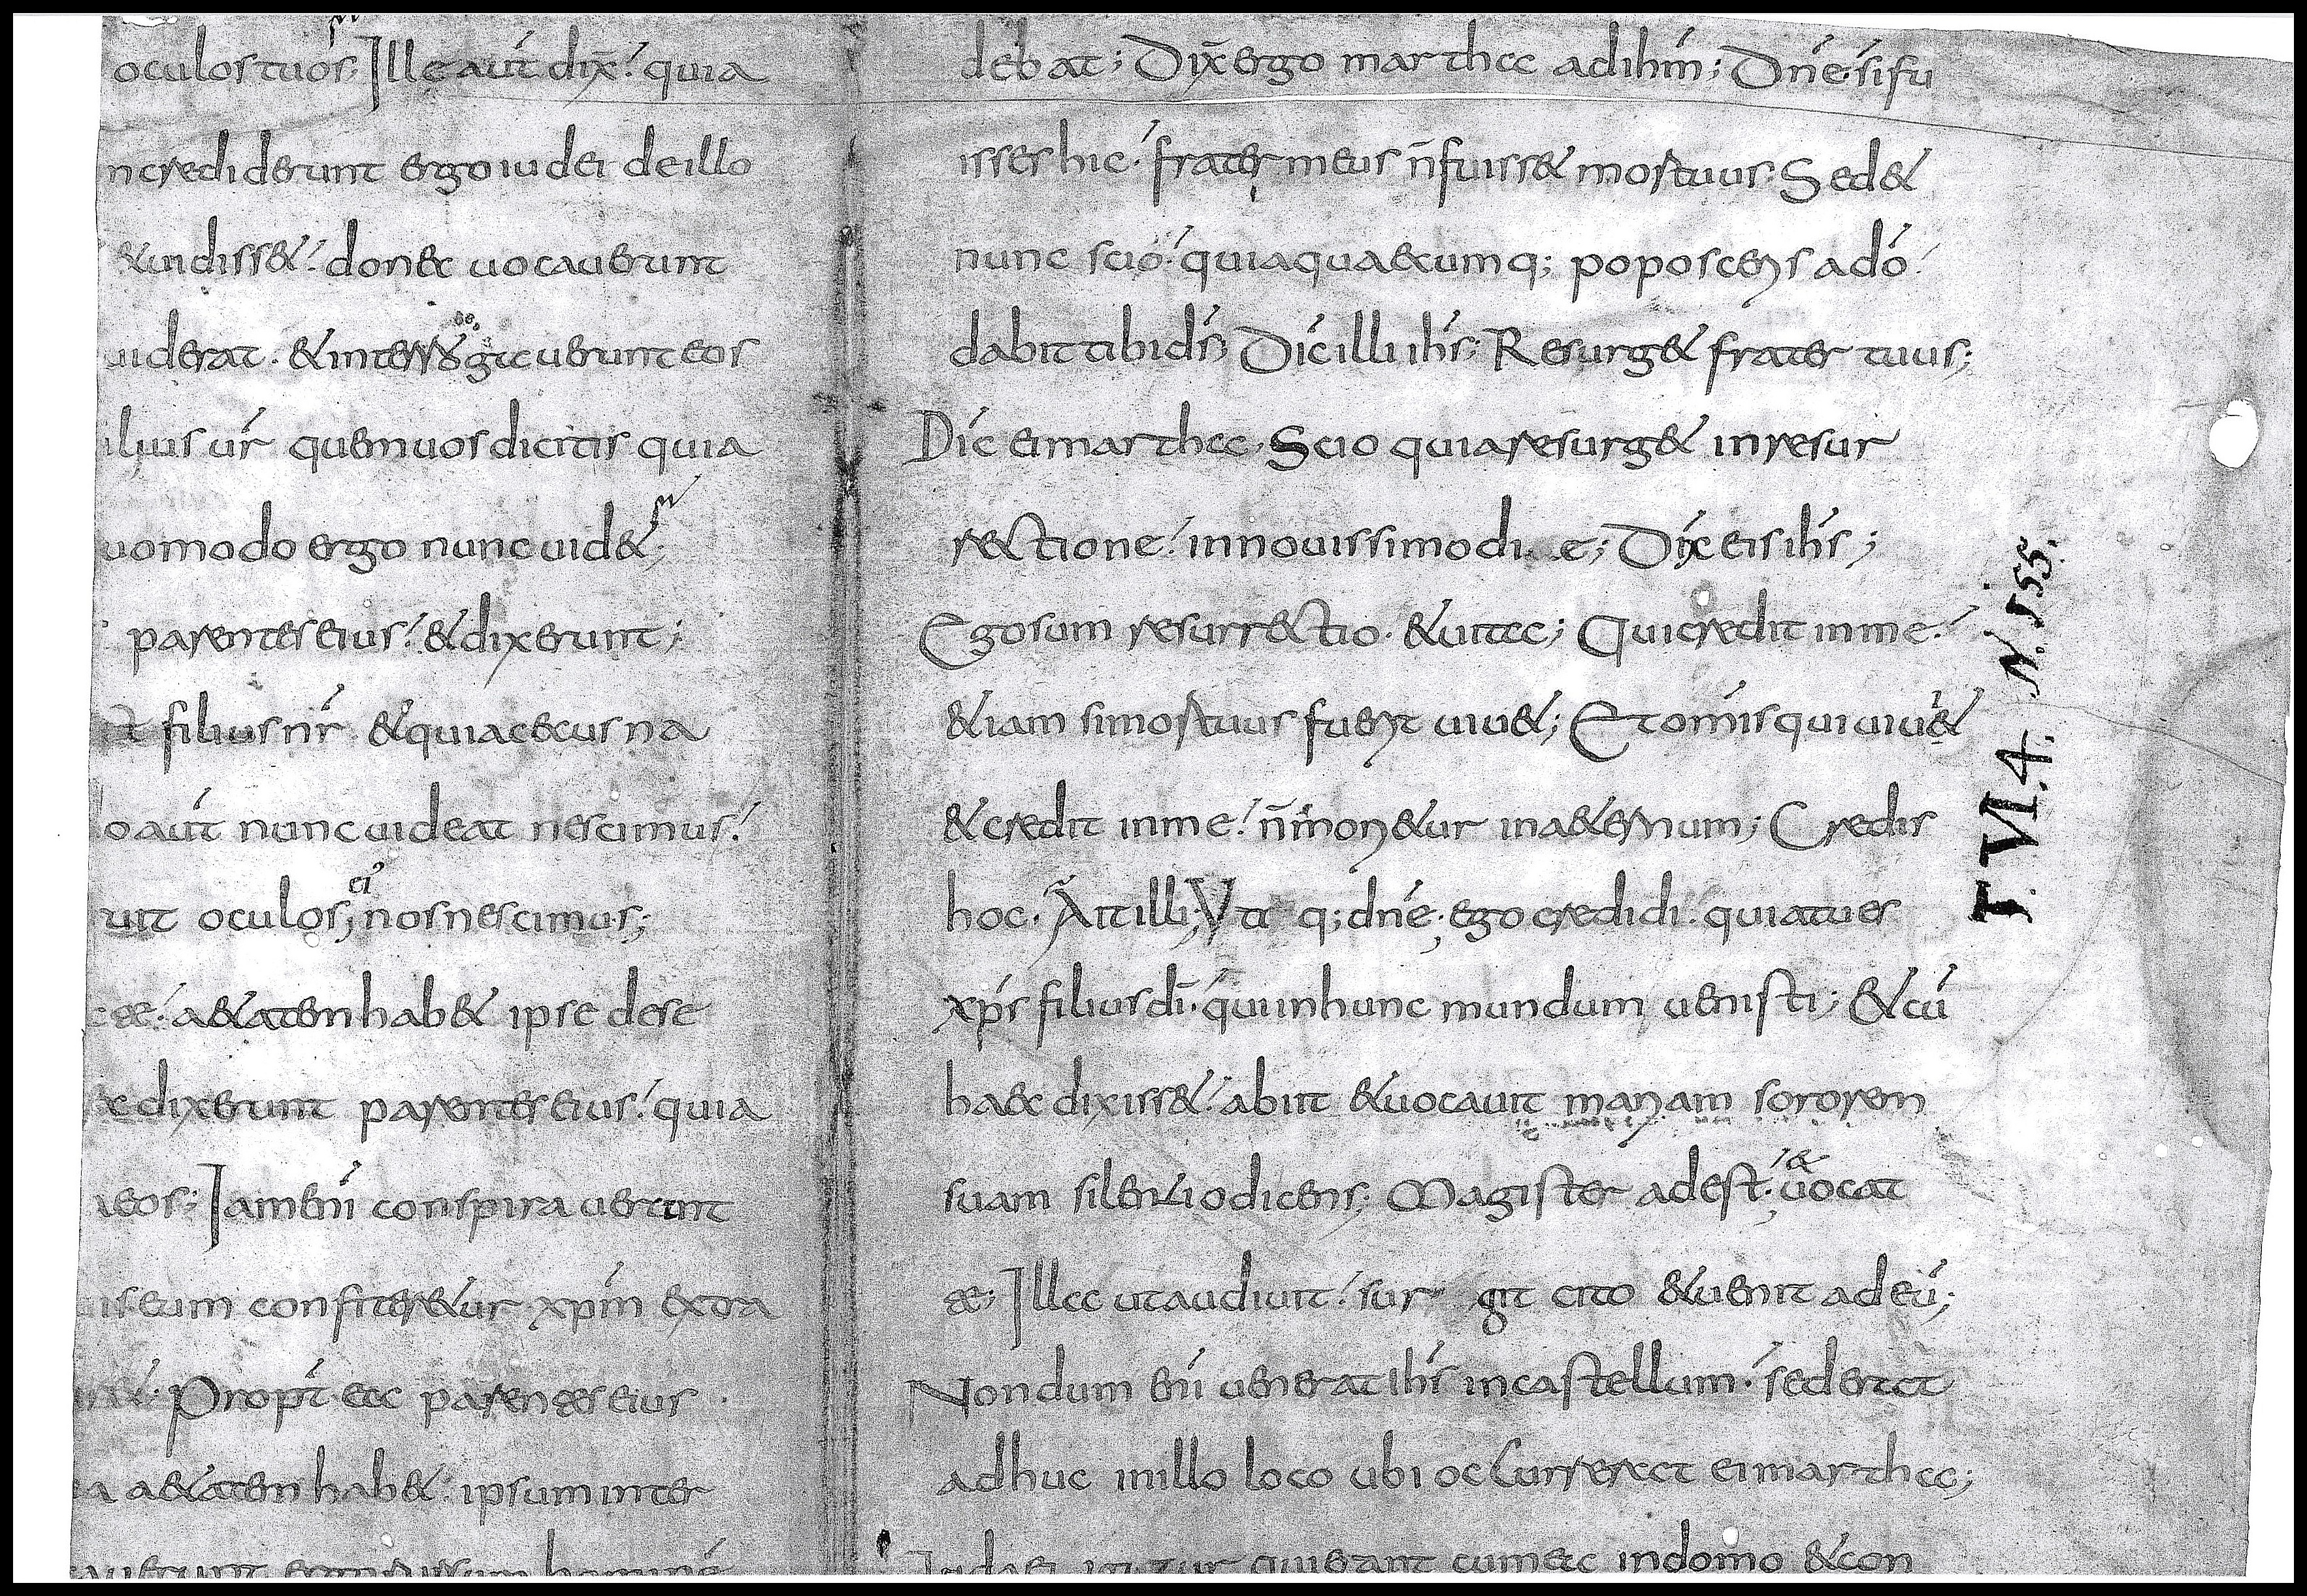 oculos tuos; Ille aut́ dix̄ quia
ncrediderunt ergo iudei de illo
&uidiss& donec uocauerunt
uiderat · & interrogauerunt eos
ilius ur̄ quem uos dicitis quia
uomodo ergo nunc uid&;
parentes eius & dixerunt;
filius nr̄ & quia cecus na
o aut́ nunc uideat nescimus
uit oculos; ei nos nescimus;
a&atem hab& ipse dese
dixerunt parentes eius quia
eos; Iam enī conspirauerunt
eum confiter&ur xp̄m extra
Propt́ ea parentes eius
a a&atem hab& ipsum inter
debat; Dix̄ ergo martha ad ihm̄; Dn̄e si fu
isses hic frater meus n̄ fuiss& mortuus Sed &
nunc scio quia quaecumq; poposceris a dō
dabit tibi ds̄; Dić illi ihs̄; Resurg& frater tuus;
Dić ei martha Scio quia resurg& in resur
r&ctione in nouissimo di e; Dix̄ eis ihs̄;
Ego sum resurr&ctio · & uita; Qui credit in me
&iam si mortuus fuerit uiu&; Et omīs qui uiu&
& credit in me n̄ mori&ur in a&ernum; Credis
hoc · Āit illi; Vti q; dn̄e ego credidi quia tu es
xp̄s filius dī qui in hunc mundum uenisti; & cū
haec dixiss& abiit & uocauit mariam sororem
suam silentio dicens; Magister adest & uocat
te; Illa ut audiuit sur git cito & uenit ad eū;
Nondum enī uenerat ihs̄ in castellum sed erat
adhuc in illo loco ubi occurrerat ei martha;
Iudaei igitur qui erant cum ea in domo & con
T. VI. 4. N. 155.